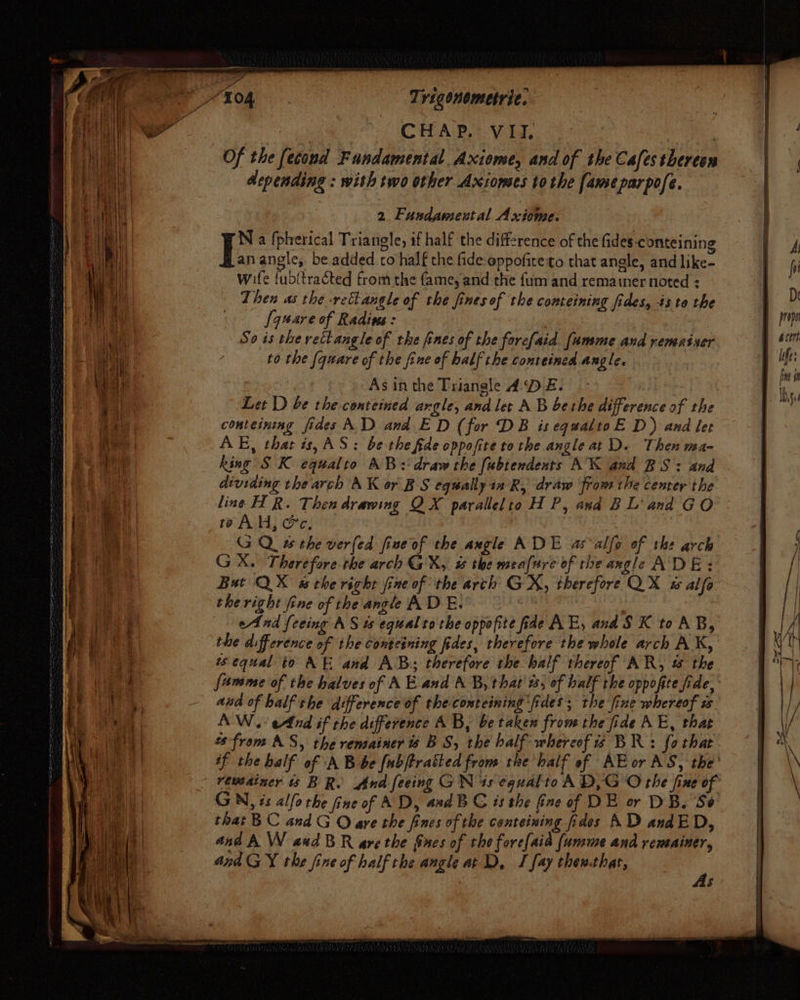 104 Trigonometrie.
CHAP. VII.
Of the ſecond Fundamental Axiome, and of the Caſes thereon
depending : with two other Axiomes to the ſame purpoſe.
2. Fundamental Axiome.
IN a ſpherical Triangle, if half the difference of the ſides conteining
an angle, be added to half the ſide oppoſite to that angle, and like-
wiſe ſubſtracted from the ſame, and the ſum and remainer noted :
Then as the rectangle of the ſines of the conteining ſides, is to the
ſquare of Radius :
So is the rectangle of the ſines of the foreſaid ſumme and remainer
to the ſquare of the ſine of half the conteined angle.
As in the Triangle A D E.
Let D be the conteined angle, and let A B be the difference of the
conteining ſides A D and E D (for D B is equal to E D) and let
A E, that is, A S : be the ſide oppoſite to the angle at D. Then ma-
king S K equal to A B : draw the ſubtendents A K and B S : and
dividing the arch A K or B S equally in R, draw from the center the
line H R. Then drawing Q X parallel to H P, and B L and G O
to A H, &c.
G Q is the verſed ſine of the angle A D E as alſo of the arch
G X. Therefore the arch G X, is the meaſure of the angle A D E :
But Q X is the right ſine of the arch G X, therefore Q X is alſo
the right ſine of the angle A D E.
And ſeeing A S is equal to the oppoſite ſide A E, and S K to A B,
the difference of the conteining ſides, therefore the whole arch A K,
is equal to A E and A B; therefore the half thereof A R, is the
ſumme of the halves of A E and A B, that is, of half the oppoſite ſide,
and of half the difference of the conteining ſides; the ſine whereof is
A W. And if the difference A B, be taken from the ſide A E, that
is from A S, the remainer is B S, the half whereof is B R : ſo that
if the half of A B be ſubſtracted from the half of A E or A S, the
remainer is B R. And ſeeing G N is equal to A D, G O the ſine of
G N, is alſo the ſine of A D, and B C is the ſine of D E or D B. So
that B C and G O are the ſines of the conteining ſides A D and E D,
and A W and B R are the ſines of the foreſaid ſumme and remainer,
and G Y the ſine of half the angle at D, I ſay then that,
As